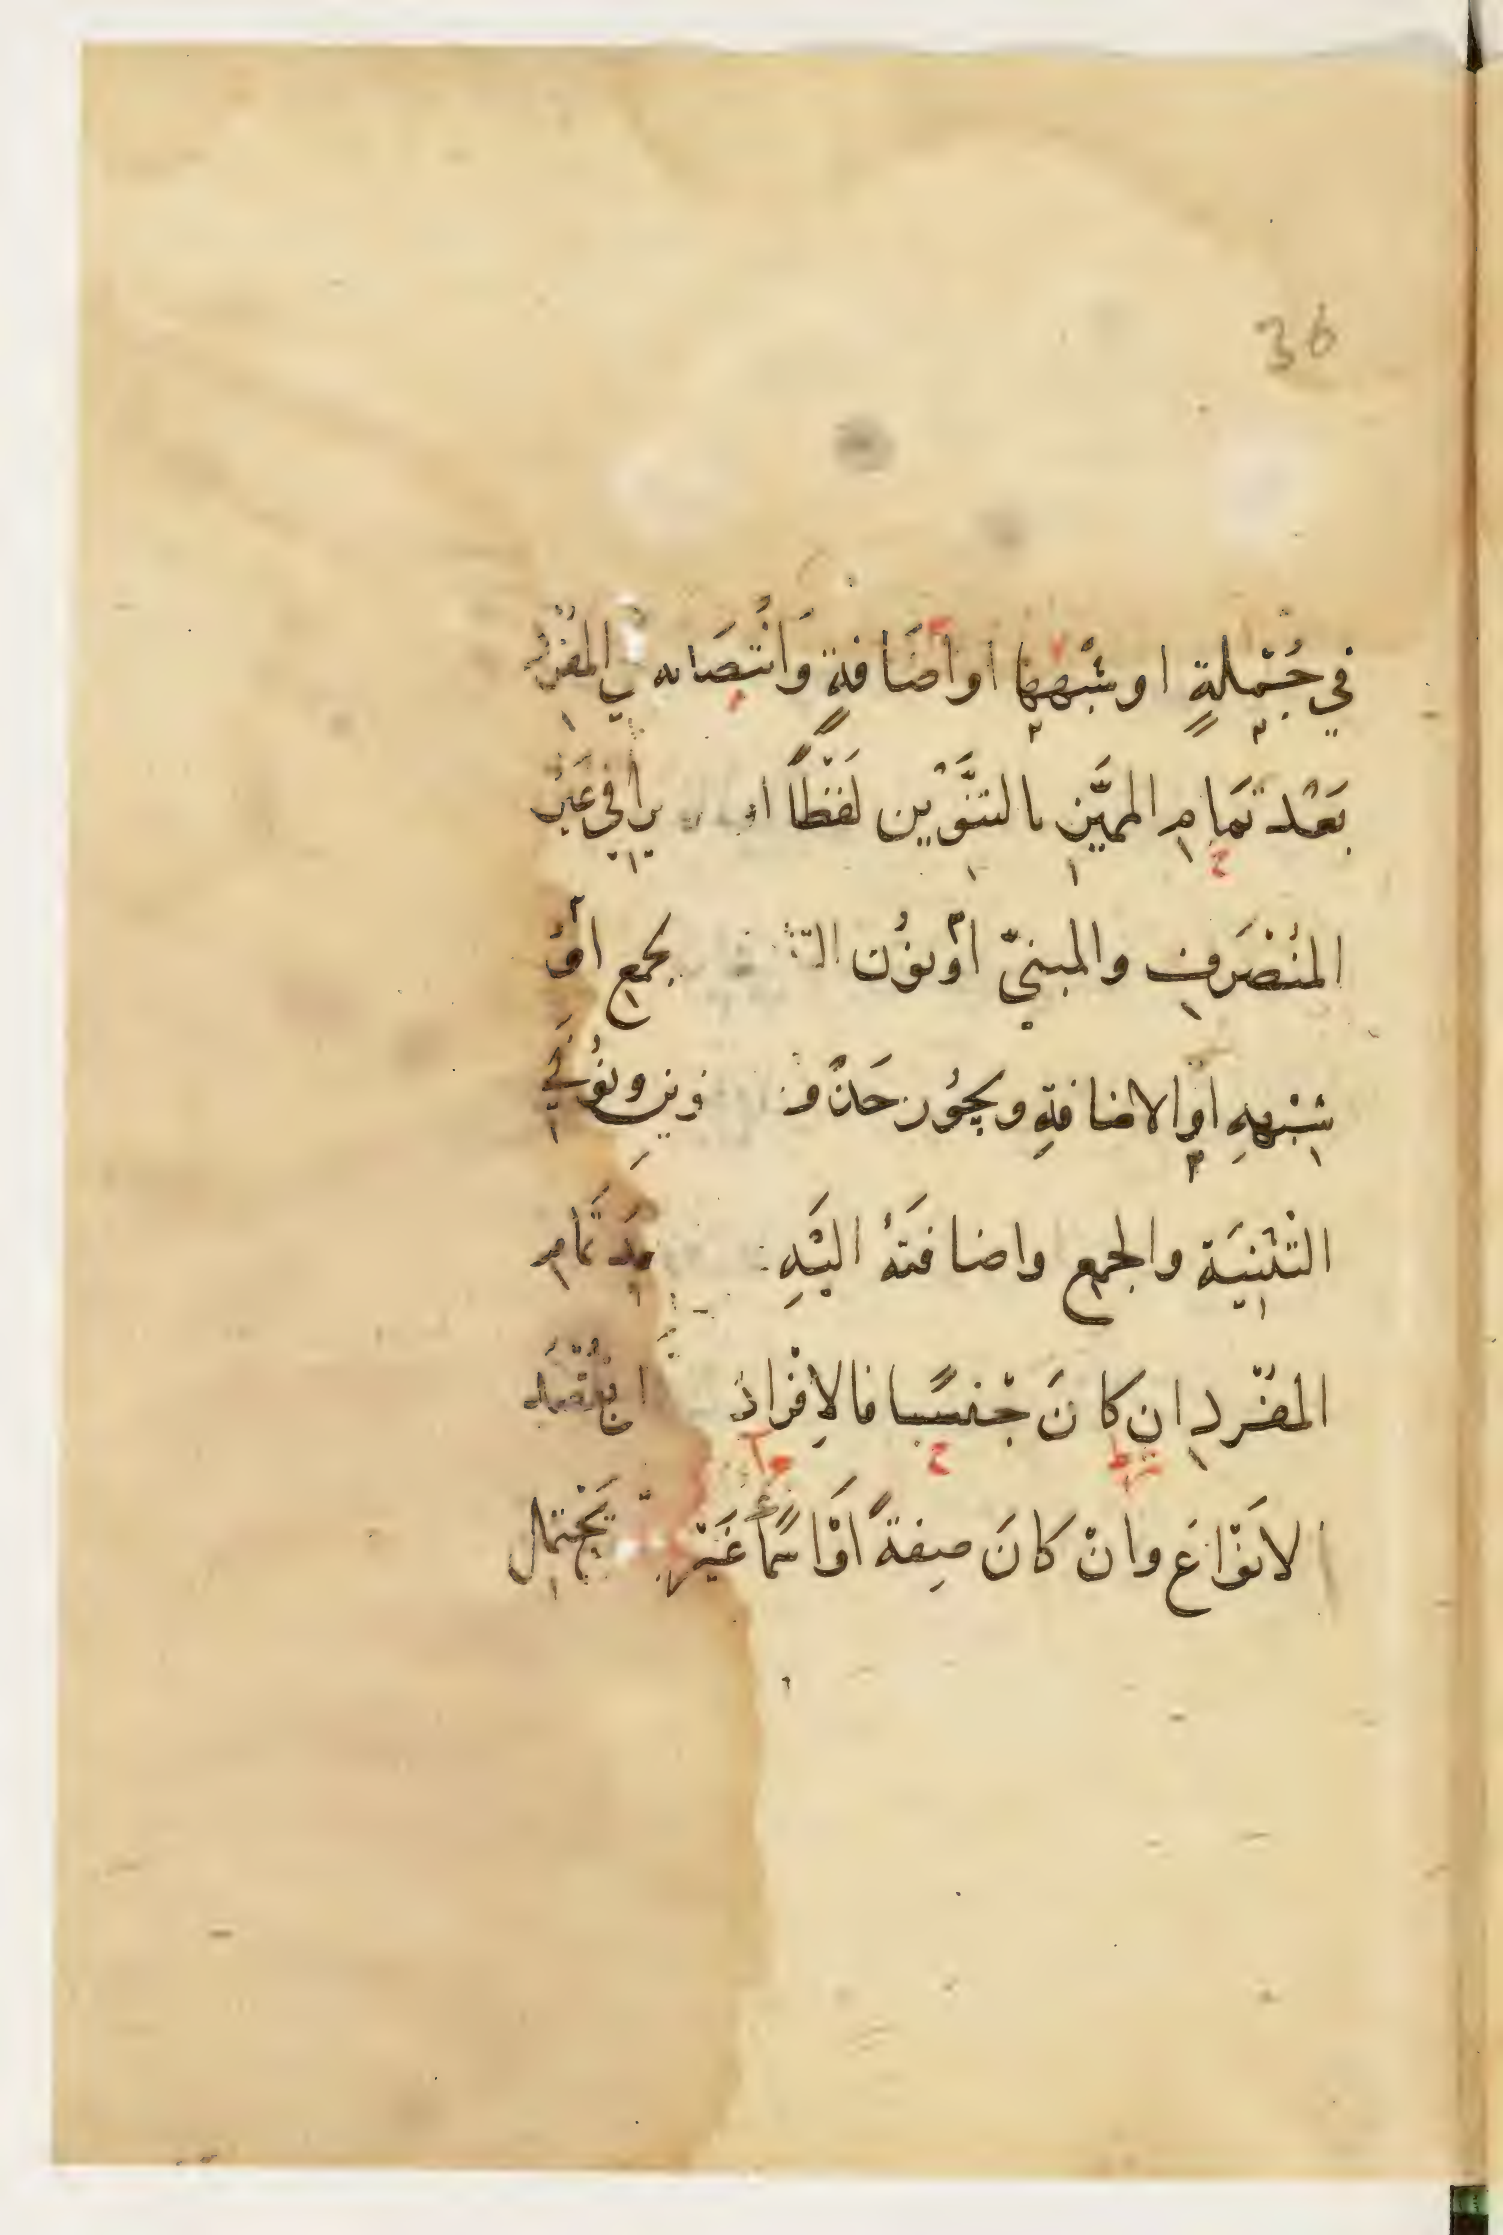 36
في جُمْلةٍ او شبْهِهَا او اضَافةٍ وَانْتصَابه في المفْرد
بَعْد تمَامِ المميَّزِ بالتنَّوْين لفظًا او في غَيْر
المنْصَرفِ والمبنيّ أوْ نوُن بجمع أوْ
شِبْههِ او الاضافةِ ويجوُز حَذْف ونوُني
التثْنِيَة والجمع واضافَتهُ اليْهِ تمَّامِ
المفْرد ان كانَ جْنسًا فالاِفْرادُ ان يُقْصَد
الانوْاعَ وانْ كانَ صِفةً اوْ اسمًا غَيْر يَحْتمل